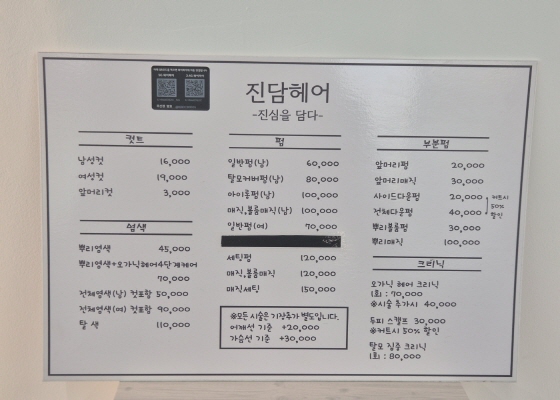 진담헤어
-진심을 담다-
컷트
남성컷 16,000
여성컷 19,000
앞머리컷 3,000
염색
뿌리염색 45,000
뿌리염색+오가닉헤어4단계케어
70,000
전체염색(남) 컷포함 50,000
전체염색(여) 컷포함 90,000
탈색 110,000
펌
일반펌(남) 60,000
탈모커버펌(남) 80,000
아이롱펌(남) 100,000
매직,볼륨매직(남) 100,000
일반펌(여) 70,000
세팅펌 120,000
매직,볼륨매직 120,000
매직세팅 150,000
※모든 시술은 기장추가 별도입니다.
어깨선 기준 +20,000
가슴선 기준 +30,000
부분펌
앞머리펌 20,000
앞머리매직 30,000
사이드다운펌 20,000
전체다운펌 40,000
컷트시
50%
할인
뿌리볼륨펌 30,000
뿌리매직 100,000
크리닉
오가닉 헤어 크리닉
1회 : 70,000
※시술 추가시 40,000
두피 스캘프 30,000
※컷트시 50% 할인
탈모 집중 크리닉
1회 : 80,000